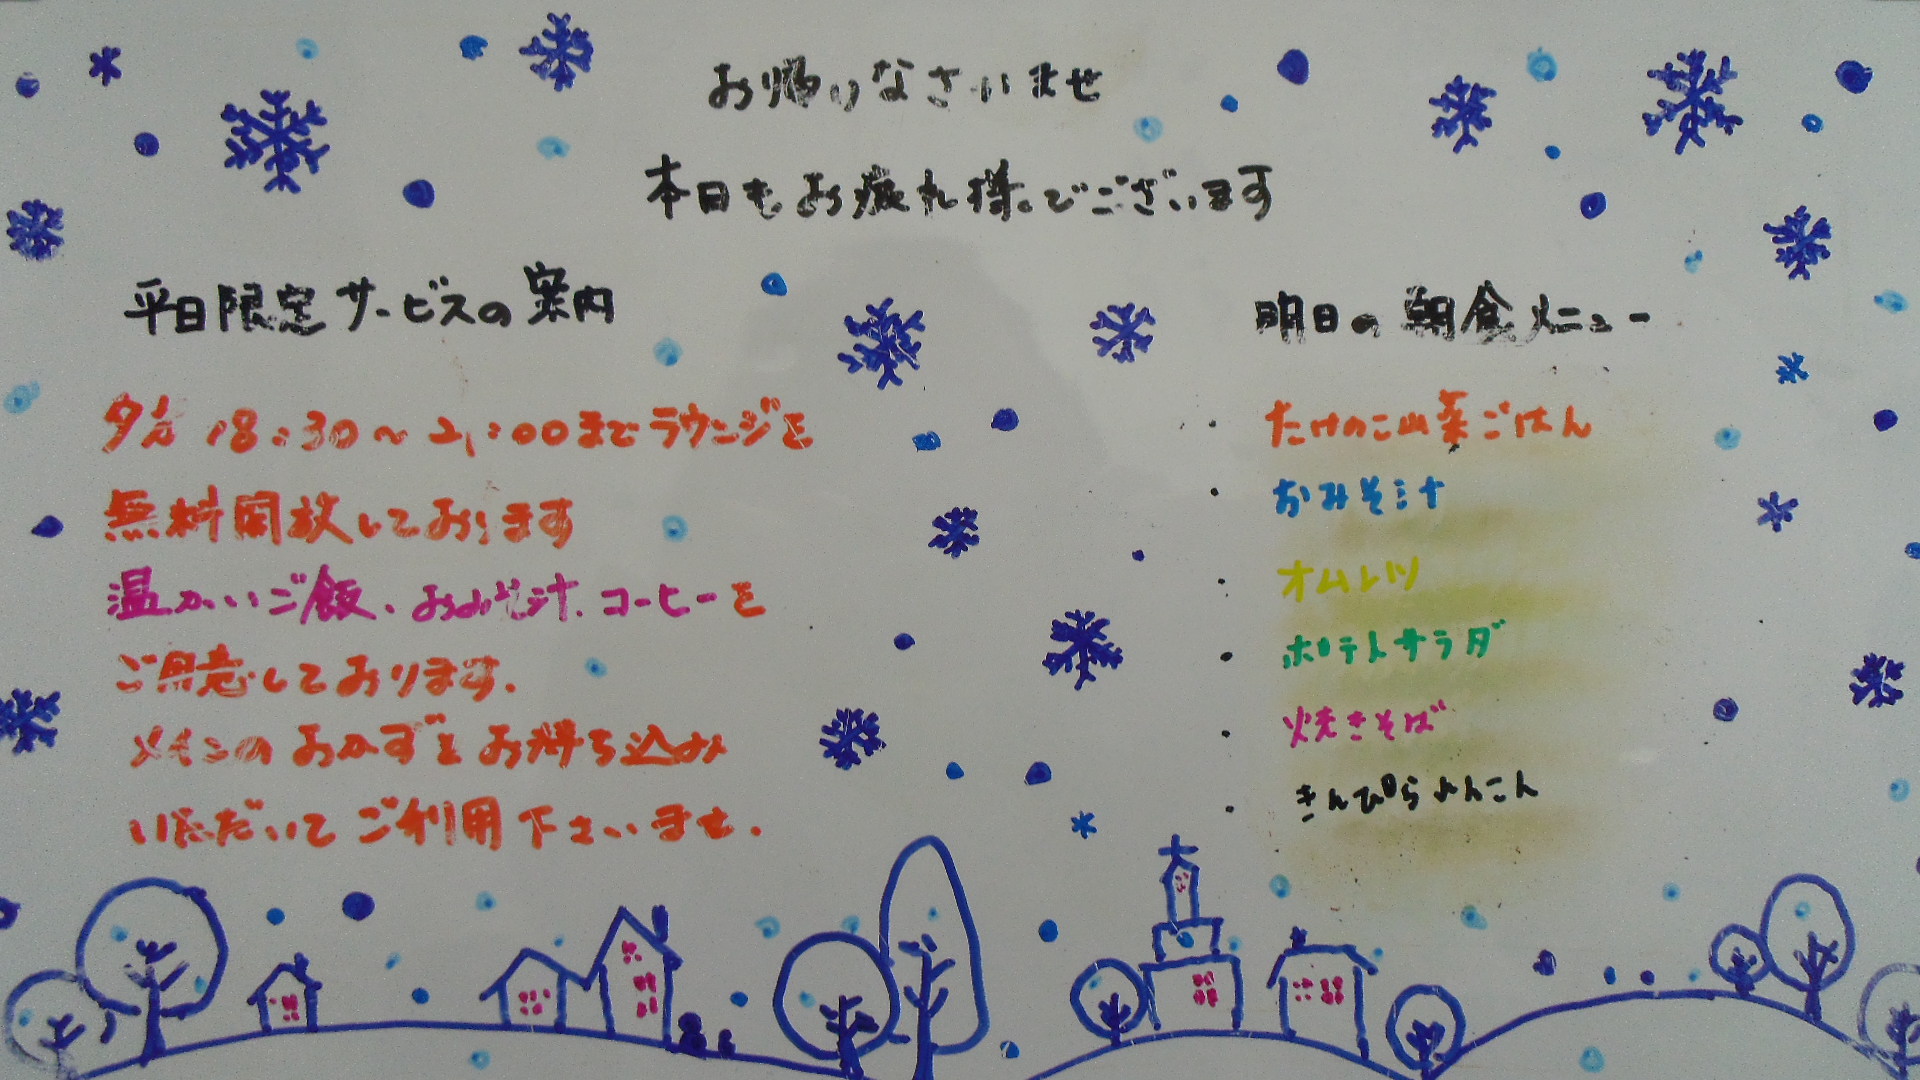 お帰りなさいませ
本日もお疲れ様でございます
平日限定サービスの案内
夕方 18:30～21:00までラウンジを
無料開放しております
温かいご飯、おみそ汁、コーヒーを
ご用意しております.
メインのおかずをお持ち込み
いただいてご利用下さいませ.
明日の朝食メニュー
・たけのこ山菜ごはん
・おみそ汁
・オムレツ
・ポテトサラダ
・焼きそば
・きんぴられんこん